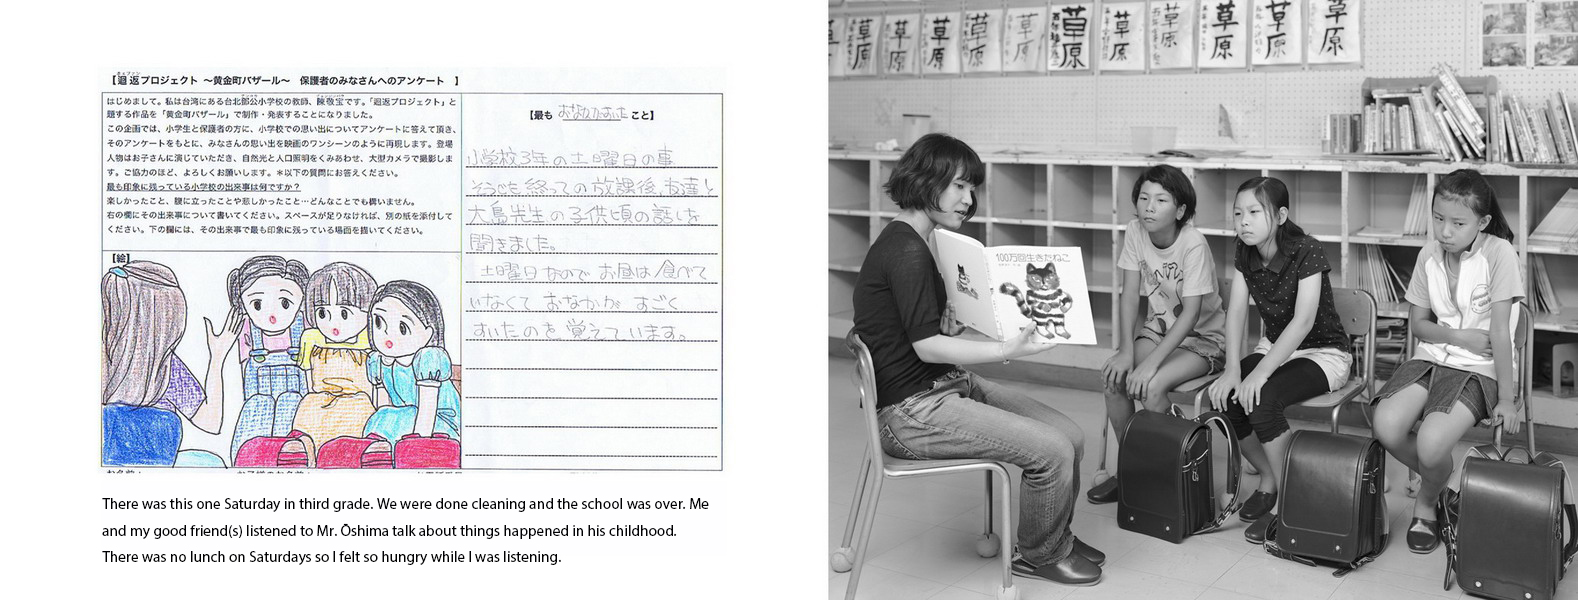 【迴返プロジェクト ～黄金町バザール～ 保護者のみなさんへのアンケート 】
はじめまして。私は台湾にある台北鄧公小学校の教師、陳敬宝です。「迴返プロジェクト」と
題する作品を「黄金町バザール」で制作・発表することになりました。
この企画では、小学生と保護者の方に、小学校での思い出についてアンケートに答えて頂き、
そのアンケートをもとに、みなさんの思い出を映画のワンシーンのように再現します。登場
人物はお子さんに演じていただき、自然光と人口照明をくみあわせ、大型カメラで撮影しま
す。ご協力のほど、よろしくお願いします。＊以下の質問にお答えください。
最も印象に残っている小学校の出来事は何ですか？
楽しかったこと、腹に立ったことや悲しかったこと…どんなことでも構いません。
右の欄にその出来事について書いてください。スペースが足りなければ、別の紙を添付して
ください。下の欄には、その出来事で最も印象に残っている場面を描いてください。
【絵】
【最も おなかがすいた こと】
小学校3年の土曜日の事
そうじを終っての放課後、友達と
大島先生の子供頃の話しを
聞きました。
土曜日なので お昼は食べて
いなくて おなかが すごく
すいたのを 覚えています。
There was this one Saturday in third grade. We were done cleaning and the school was over. Me
and my good friend(s) listened to Mr. Ōshima talk about things happened in his childhood.
There was no lunch on Saturdays so I felt so hungry while I was listening.
草原
草原
草原
草原
草原
草原
草原
草原
草原
草原
草原
100万回生きたねこ